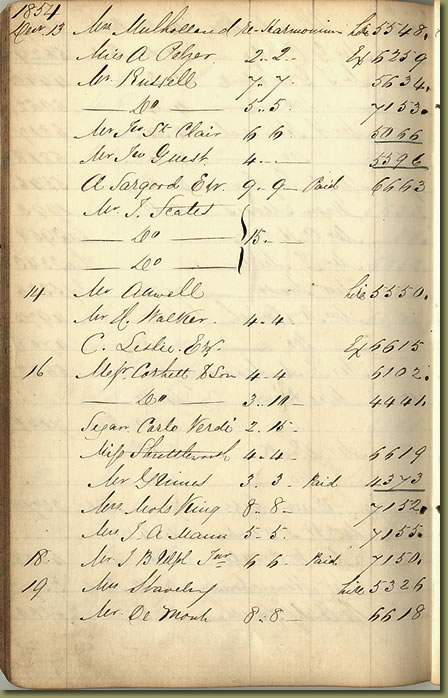 1854
Decr. 13 Mrs Mulholland re-Harmonium hire 5548.
Miss A Pelzer 2..2.. Ex 6259
Mr Russell 7..7. 5634.
— Do — 5..5. 7153.
Mr Jno St Clair 6 6 5066
Mr Jno Guest 4.— 5596
A Sargood Esr. 9..9— Paid 6663
Mr. J. Scates
— Do — 15.—
— Do —
14 Mr Atwell hire 5550.
Mr H. Walker. 4..4
C. Leslie. Esr. Ex 6615
16 Messr Corbett & Son 4..4 6102.
— Do — 3..10— 4441.
Signr. Carlo Verdi 2..15—
Miss Shuttleworth 4..4. 6619
Mr Grimes 3..3. Paid 4373
Mrs King 8..8— 7152.
Mrs J. A. Mann 5..5. 7155.
18. Mr. J B Junr 6 6. Paid 7150.
19 Mrs Staveley hire 5326
Mr. De Monk 8..8— 6618